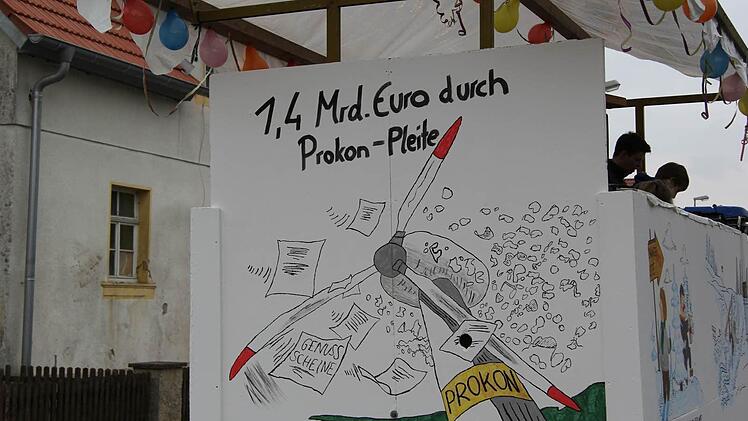 1,4 Mrd. Euro durch
Prokon-Pleite
GENUSS
SCHEINE
PROKON